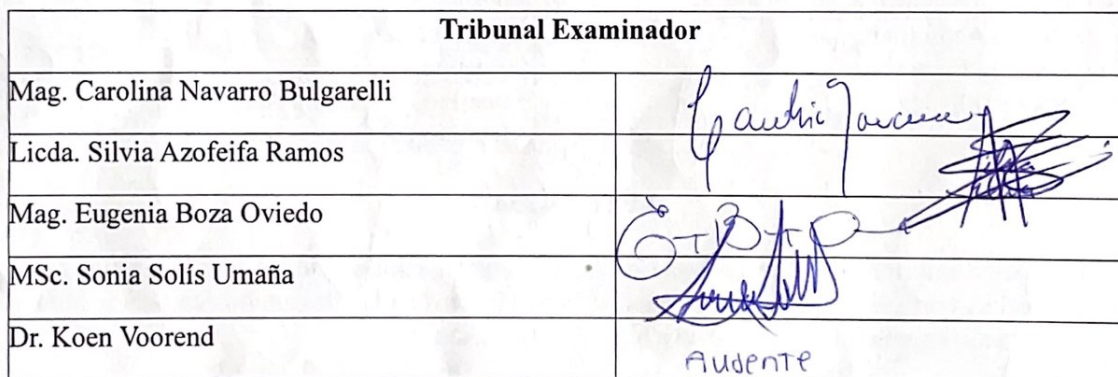 Tribunal Examinador
Mag. Carolina Navarro Bulgarelli
Licda. Silvia Azofeifa Ramos
Mag. Eugenia Boza Oviedo
MSc. Sonia Solís Umaña
Dr. Koen Voorend
Ausente